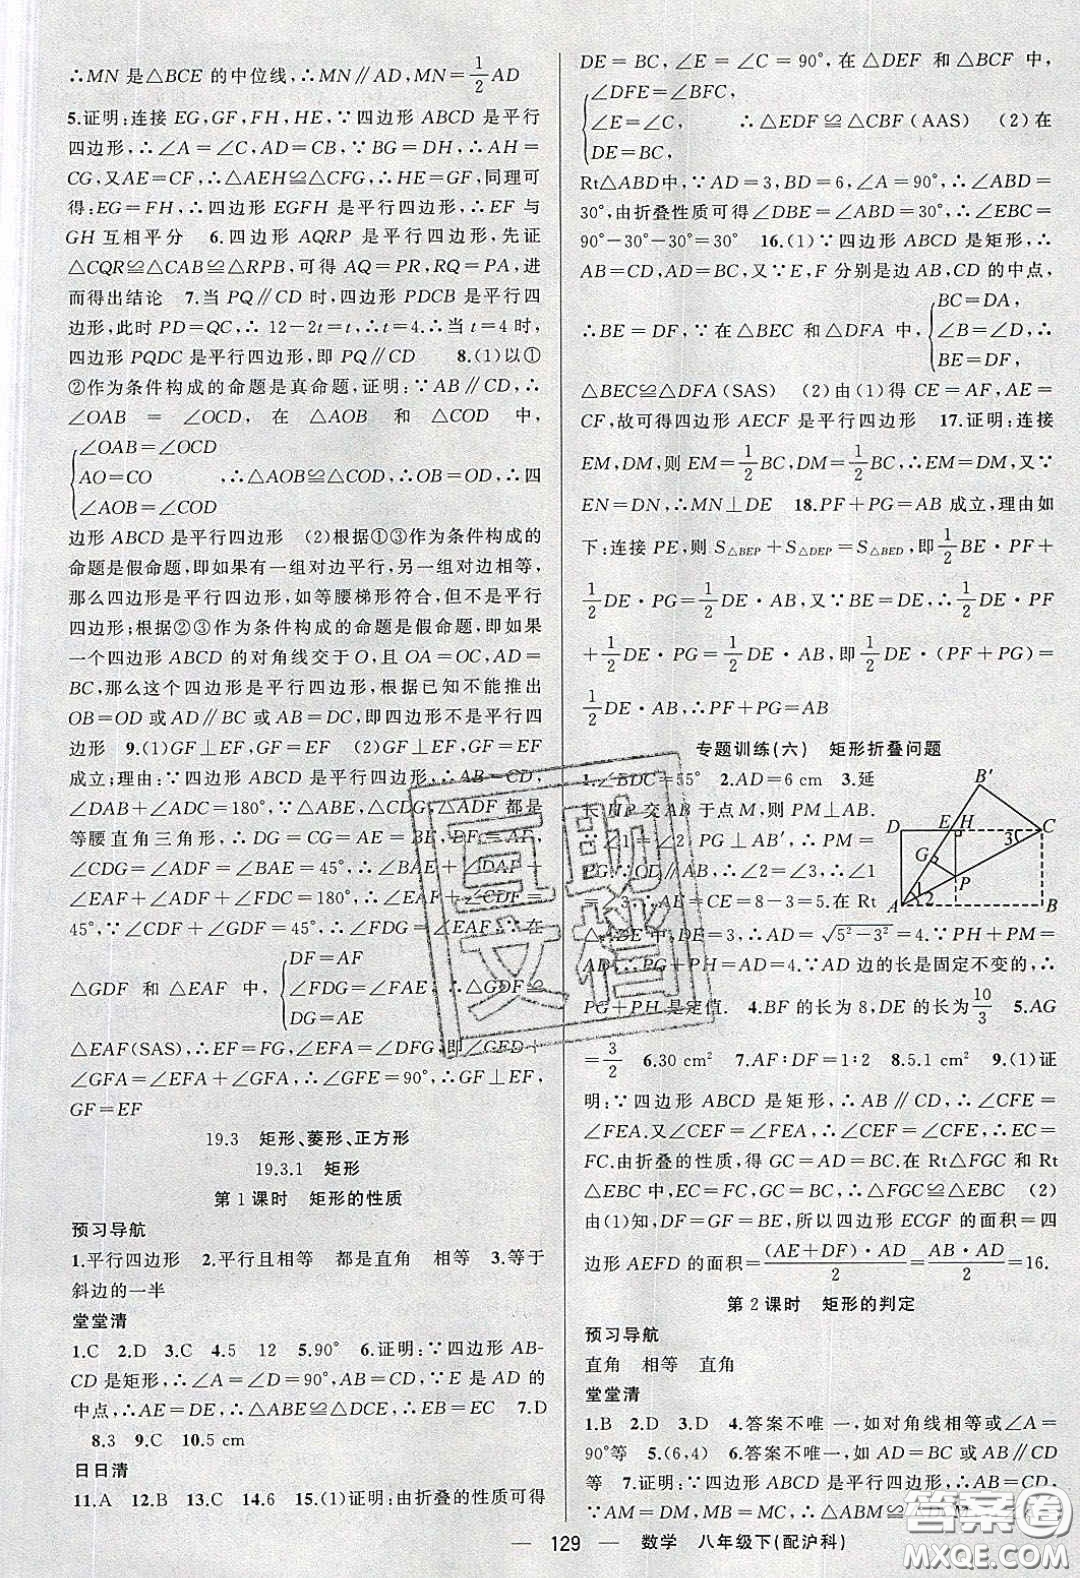 ∴MN 是△BCE 的中位线,∴MN∥AD,MN=1/2AD
5.证明:连接 EG,GF,FH,HE,∵四边形 ABCD 是平行
四边形,∴∠A=∠C,AD=CB,∵BG=DH,∴AH=
CG,又AE=CF,∴△AEH≌△CFG,∴HE=GF,同理可
得:EG=FH,∴四边形 EGFH 是平行四边形,∴EF 与
GH 互相平分 6.四边形 AQRP 是平行四边形,先证
△CQR≌△CAB≌△RPB,可得 AQ=PR,RQ=PA,进
而得出结论 7.当 PQ∥CD 时,四边形 PDCB 是平行四
边形,此时 PD=QC,∴12-2t=t,∴t=4.∴当 t=4 时,
四边形 PQDC 是平行四边形,即 PQ∥CD 8.(1)以①
②作为条件构成的命题是真命题,证明:∵AB∥CD,∴
∠OAB=∠OCD,在△AOB 和△COD 中,
∠OAB=∠OCD
AO=CO ∴△AOB≌△COD,∴OB=OD,∴四
∠AOB=∠COD
边形 ABCD 是平行四边形 (2)根据①③作为条件构成的
命题是假命题,即如果有一组对边平行,另一组对边相等,
那么四边形是平行四边形,如等腰梯形符合,但不是平行
四边形;根据②③作为条件构成的命题是假命题,即如果
一个四边形 ABCD 的对角线交于 O,且 OA=OC,AD=
BC,那么这个四边形是平行四边形,根据已知不能推出
OB=OD 或AD∥BC 或AB=DC,即四边形不是平行四
边形 9.(1)GF⊥EF,GF=EF (2)GF⊥EF,GF=EF
成立;理由:∵四边形 ABCD 是平行四边形,∴AB=CD,
∠DAB+∠ADC=180°,∵△ABE,△CDG,△ADF 都是
等腰直角三角形,∴DG=CG=AE=BE,DF=AF,
∠CDG=∠ADF=∠BAE=45°,∴∠BAE+∠DAF+
∠EAF+∠ADF+∠FDC=180°,∴∠EAF+∠CDF=
45°,∵∠CDF+∠GDF=45°,∴∠FDG=∠EAF,∵在
△GDF 和△EAF 中,
DF=AF
∠FDG=∠FAE,∴△GDF≌
DG=AE
△EAF(SAS),∴EF=FG,∠EFA=∠DFG,即∠GFD+
∠GFA=∠EFA+∠GFA,∴∠GFE=90°,∴GF⊥EF,
GF=EF
19.3 矩形、菱形、正方形
19.3.1 矩形
第 1 课时 矩形的性质
预习导航
1.平行四边形 2.平行且相等 都是直角 相等 3.等于
斜边的一半
堂堂清
1.C 2.D 3.C 4.5 12 5.90° 6.证明:∵四边形 AB-
CD 是矩形,∴∠A=∠D=90°,AB=CD,∵E 是 AD 的
中点,∴AE=DE,∴△ABE≌△DCE,∴EB=EC 7.D
8.3 9.C 10.5 cm
日日清
11.A 12.B 13.C 14.6 15.(1)证明:由折叠的性质可得
DE=BC,∠E=∠C=90°,在△DEF 和△BCF 中,
∠DFE=∠BFC,
∠E=∠C, ∴△EDF≌△CBF(AAS) (2)在
DE=BC,
Rt△ABD中,∵AD=3,BD=6,∠A=90°,∴∠ABD=
30°,由折叠性质可得∠DBE=∠ABD=30°,∴∠EBC=
90°-30°-30°=30° 16.(1)∵四边形 ABCD 是矩形,∴
AB=CD,AD=BC,又∵E,F 分别是边 AB,CD 的中点,
∴BE=DF,∵在△BEC 和△DFA 中,
BC=DA,
∠B=∠D,∴
BE=DF,
△BEC≌△DFA(SAS) (2)由(1)得 CE=AF,AE=
CF,故可得四边形 AECF 是平行四边形 17.证明:连接
EM,DM,则 EM=1/2BC,DM=1/2BC,∴EM=DM,又∵
EN=DN,∴MN⊥DE 18.PF+PG=AB 成立,理由如
下:连接 PE,则 S△BEP+S△DEP=S△BED,即1/2BE·PF+
1/2DE·PG=1/2DE·AB,又∵BE=DE,∴1/2DE·PF
+1/2DE·PG=1/2DE·AB,即1/2DE·(PF+PG)=
1/2DE·AB,∴PF+PG=AB
专题训练(六) 矩形折叠问题
1.∠BDC=55° 2.AD=6 cm 3.延
长 HP 交 AB 于点M,则 PM⊥AB.
∵∠1=∠2,PG⊥AB′,∴PM=
PG.∵CD∥AB,∴∠2=∠3,∴∠1
=∠3,∴AE=CE=8-3=5.在 Rt
△ADE 中,DE=3,∴AD=√5²-3²=4.∵PH+PM=
AD,∴PG+PH=AD=4.∵AD 边的长是固定不变的,∴
PG+PH 是定值. 4.BF 的长为 8,DE 的长为10/3 5.AG
=3/2 6.30 cm² 7.AF∶DF=1∶2 8.5.1 cm² 9.(1)证
明:∵四边形 ABCD 是矩形,∴AB∥CD,∴∠CFE=
∠FEA.又∠CEF=∠FEA,∴∠CEF=∠CFE,∴EC=
FC.由折叠的性质,得 GC=AD=BC.在Rt△FGC 和Rt
△EBC 中,FC=EC,GC=BC,∴△FGC≌△EBC (2)
由(1)知,DF=GF=BE,所以四边形 ECGF 的面积=四
边形 AEFD 的面积=(AE+DF)·AD/2=AB·AD/2=16.
第 2 课时 矩形的判定
预习导航
直角 相等 直角
堂堂清
1.B 2.D 3.D 4.答案不唯一,如对角线相等或∠A=
90°等 5.(6,4) 6.答案不唯一,如 AD=BC 或 AB∥CD
等 7.证明:∵四边形 ABCD 是平行四边形,∴AB=CD,
∵AM=DM,MB=MC,∴△ABM≌△DCM,
D E H C B′ G P A B 1 2 3
— 129 — 数学 八年级下(配沪科)
答案圈
MXQE.COM